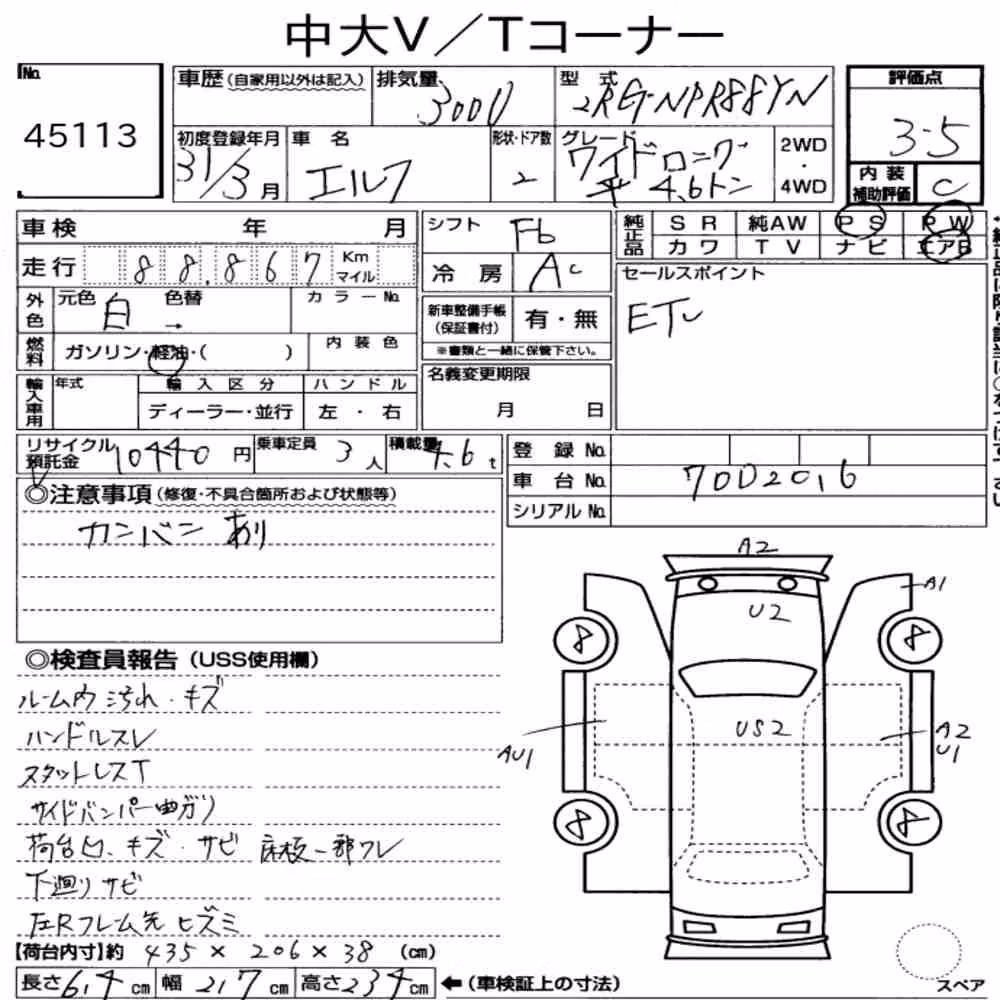 中大V／Tコーナー
No. 45113
車歴 (自家用以外は記入)
排気量 3000
型式 2RG-NPR88YN
評価点 3.5
初度登録年月 31/3月
車名 エルフ
形状・ドア数 2
グレード ワイドロング
平 4.6トン
2WD・4WD
内装補助評価 C
車検 年 月
シフト F6
純正品 SR 純AW PS PW
カワ TV ナビ エアB
走行 88.867 Km マイル
冷房 AC
セールスポイント
ETC
外色 元色 白 色替 →
カラーNo.
新車整備手帳(保証書付) 有・無
※書類と一緒に保管下さい。
燃料 ガソリン・軽油・( )
内装色
輸入車用 年式 輸入区分 ハンドル
ディーラー・並行 左・右
名義変更期限
月 日
リサイクル預託金 10440円
乗車定員 3人
積載量 4.6t
登録No.
車台No. 7002016
シリアルNo.
◎注意事項 (修復・不具合箇所および状態等)
カンバン あり
◎検査員報告 (USS使用欄)
ルーム内 汚れ・キズ
ハンドルスレ
スタットレスT
サイドバンパー曲ガリ
荷台凹、キズ・サビ 床板一部ワレ
下廻りサビ
左Rフレーム先 ヒズミ
【荷台内寸】約 435 × 206 × 38 (cm)
長さ 614 cm 幅 217 cm 高さ 234 cm ←(車検証上の寸法)
A2
U2
A1
8
8
US2
AU1
A2
U1
8
8
スペア